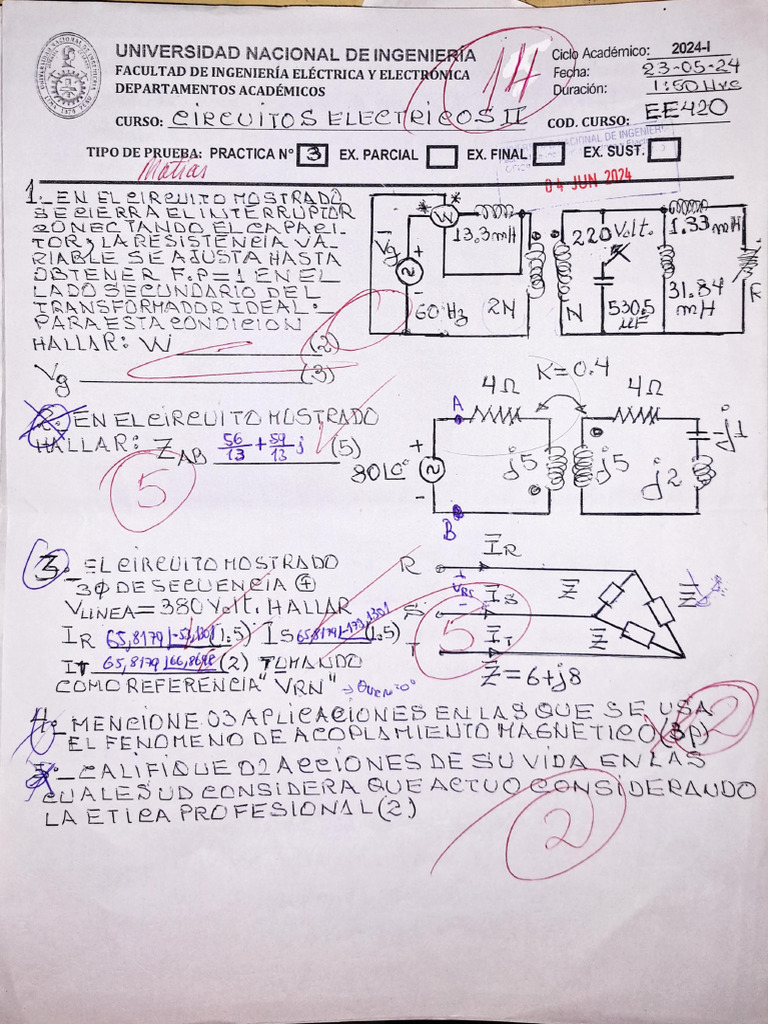 UNIVERSIDAD NACIONAL DE INGENIERÍA
FACULTAD DE INGENIERÍA ELÉCTRICA Y ELECTRÓNICA
DEPARTAMENTOS ACADÉMICOS
Ciclo Académico: 2024-I
Fecha: 23-05-24
Duración: 1:50 Hrs
14
CURSO: CIRCUITOS ELECTRICOS II
COD. CURSO: EE420
TIPO DE PRUEBA: PRACTICA N° 3 EX. PARCIAL EX. FINAL EX. SUST.
NACIONAL DE INGENIER
04 JUN 2024
Matías
1._ EN EL CIRCUITO MOSTRADO
SE CIERRA EL INTERRUPTOR
CONECTANDO EL CAPACI-
TOR, LA RESISTENCIA VA-
RIABLE SE AJUSTA HASTA
OBTENER F.P=1 EN EL
LADO SECUNDARIO DEL
TRANSFORMADOR IDEAL.
PARA ESTA CONDICION
HALLAR: W (2)
Vg (3)
Vg
+
-
60 Hz
* *
W
13.3mH
2N
N
220 Volt.
530.5
μF
1.33 mH
31.84
mH
R
2. EN EL CIRCUITO MOSTRADO
HALLAR: Z AB 56/13 + 59/13 j (5)
5
K=0.4
A
4Ω
4Ω
80∠0°
+
-
j5
j5
j2
-j1
B
3._ EL CIRCUITO MOSTRADO
3Φ DE SECUENCIA (+)
V LINEA = 380 Volt. HALLAR
IR 65,8179∠-53,1301 (1.5) IS 65,8179∠-173,1301 (1.5)
IT 65,8179∠66,8698 (2) TOMANDO
COMO REFERENCIA "VRN"
5
R
S
T
IR
IS
IT
+
VRS
-
Z
Z
Z
Z=6+j8
4._ MENCIONE 03 APLICACIONES EN LAS QUE SE USA
EL FENOMENO DE ACOPLAMIENTO MAGNETICO (3p)
2
5._ CALIFIQUE 02 ACCIONES DE SU VIDA EN LAS
CUALES UD CONSIDERA QUE ACTUO CONSIDERANDO
LA ETICA PROFESIONAL (2)
2